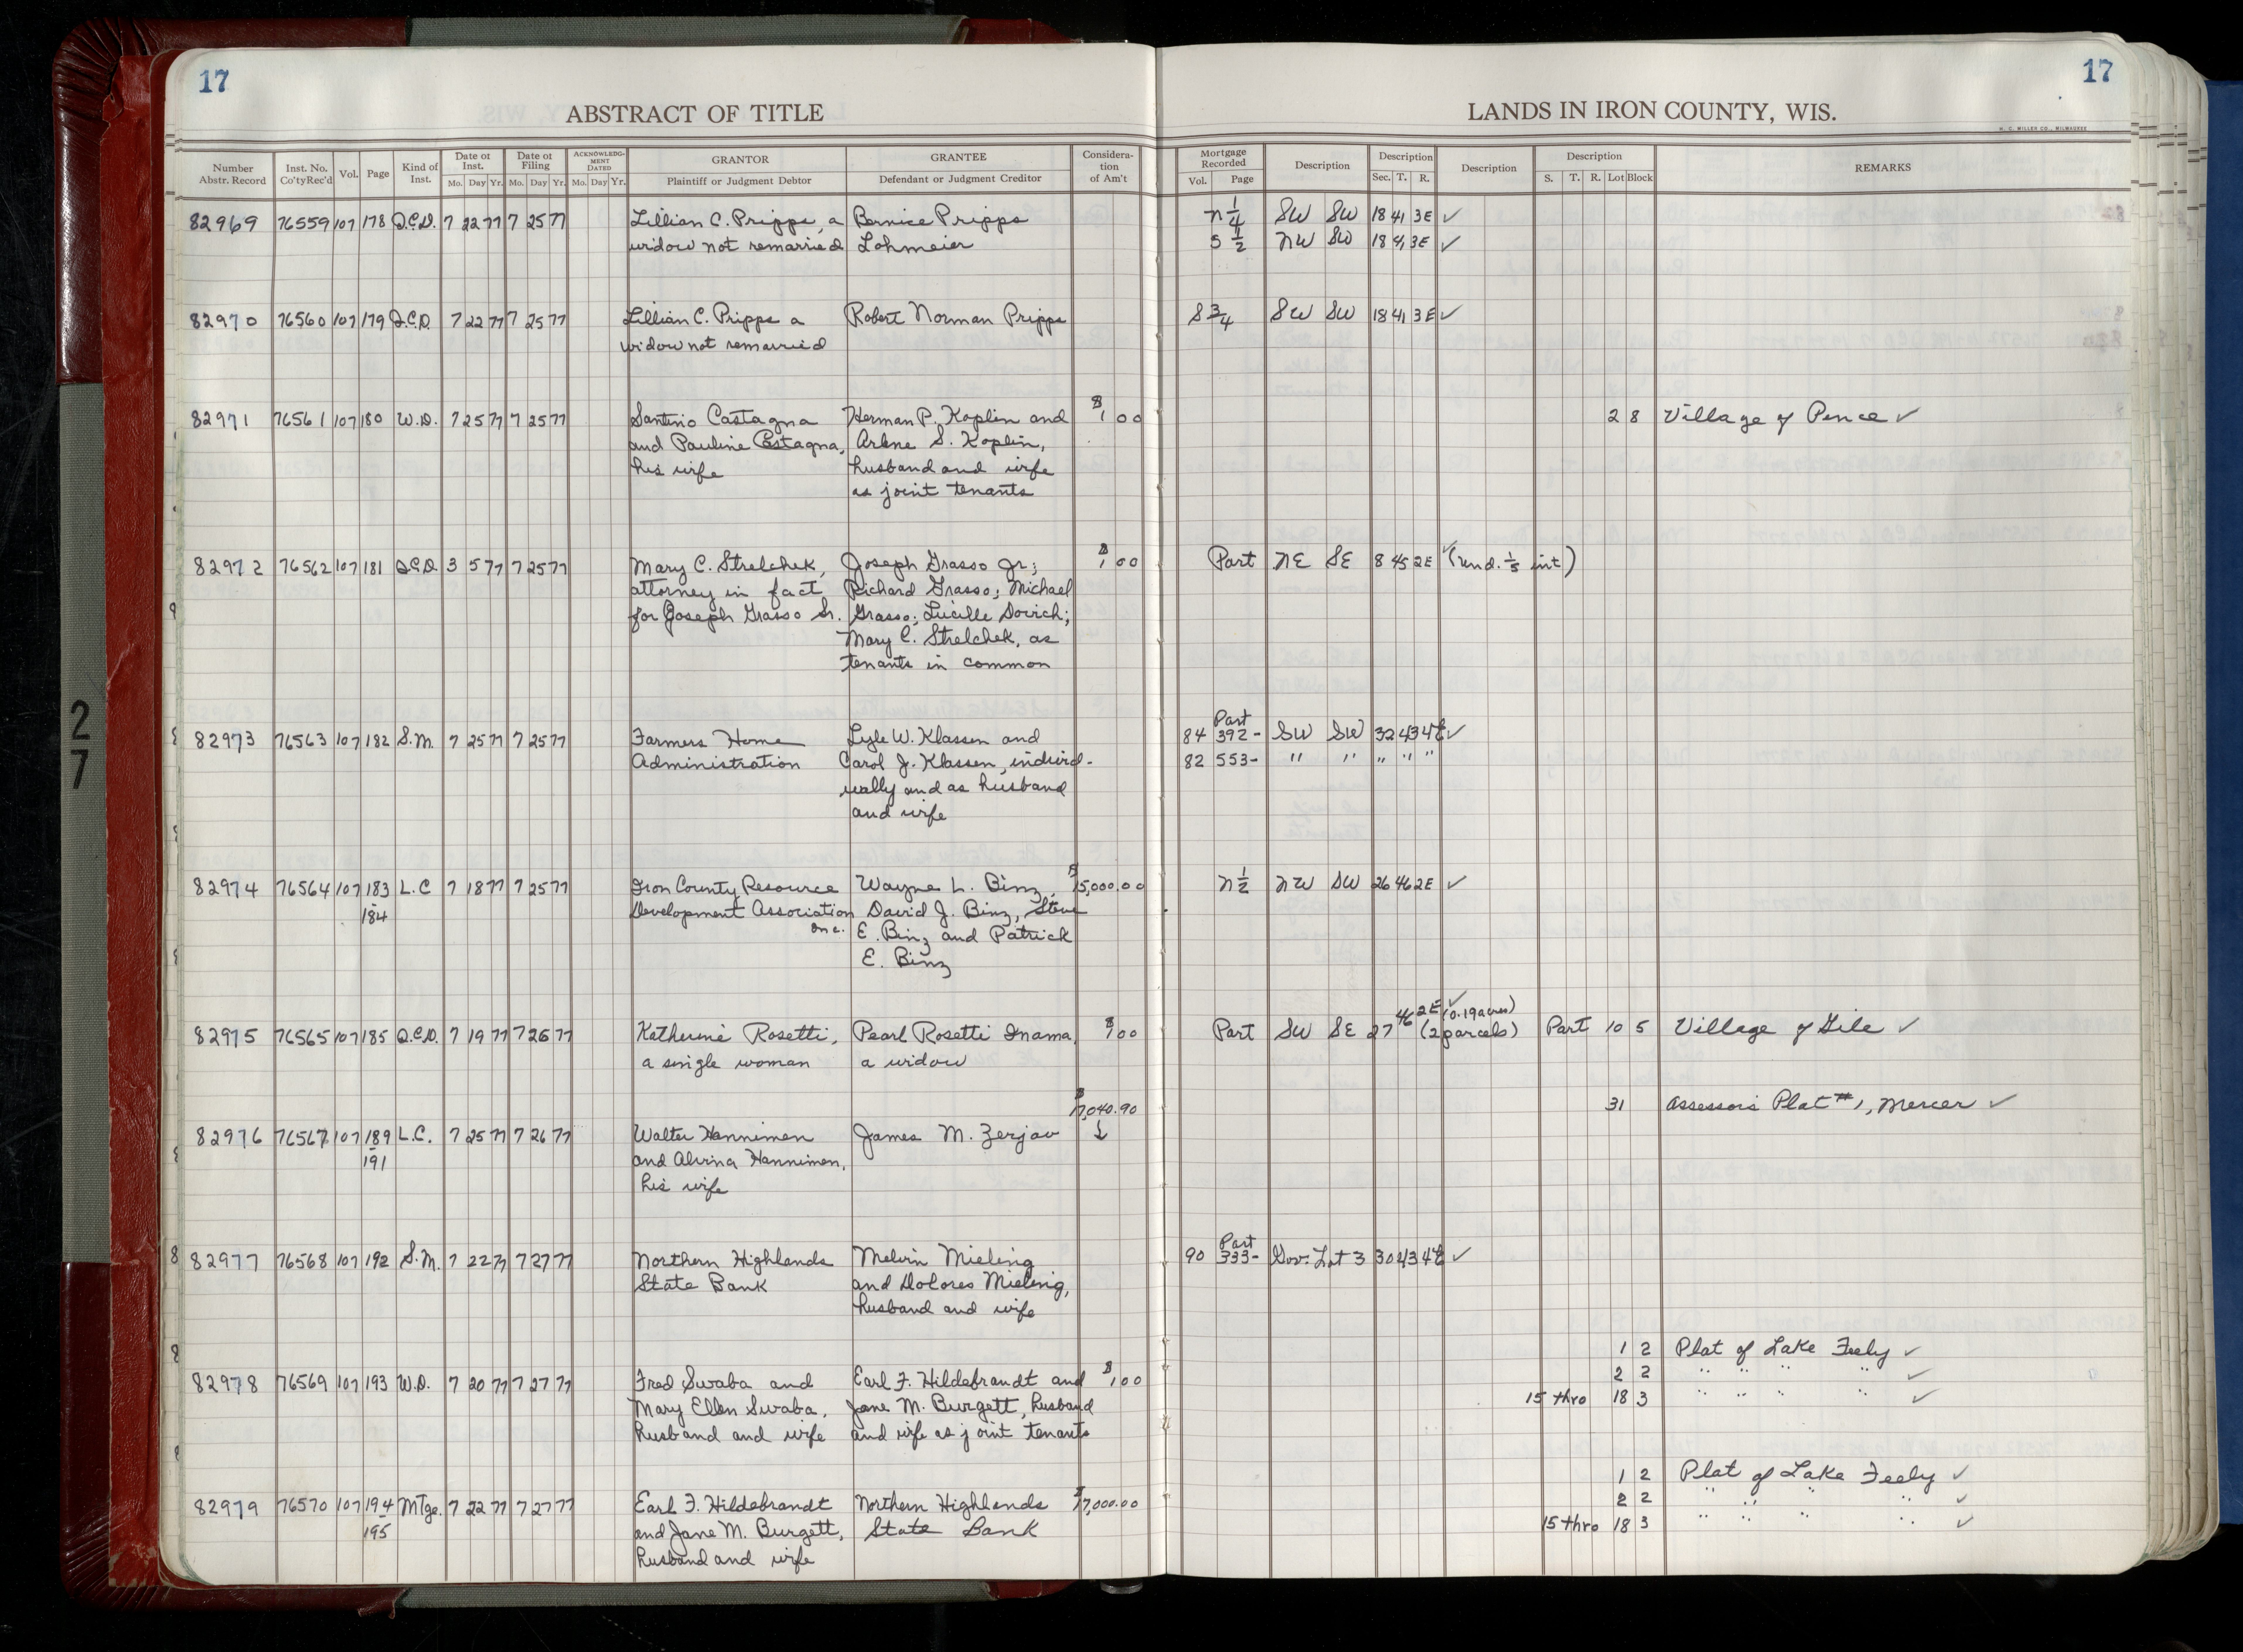 17
17
ABSTRACT OF TITLE
LANDS IN IRON COUNTY, WIS.
H. C. MILLER CO., MILWAUKEE
Number Abstr. Record | Inst. No. Co'tyRec'd | Vol. | Page | Kind of Inst. | Date of Inst. Mo. Day Yr. | Date of Filing Mo. Day Yr. | ACKNOWLEDGMENT DATED Mo. Day Yr. | GRANTOR Plaintiff or Judgment Debtor | GRANTEE Defendant or Judgment Creditor | Consideration of Am't | Mortgage Recorded Vol. Page | Description | Description Sec. T. R. | Description | Description S. T. R. Lot Block | REMARKS
82969 76559 107 178 Q.C.D. 7 22 77 7 25 77 Lillian C. Pripps, a Bernice Pripps N 1/4 SW SW 18 41 3E ✓
widow not remarried Lohmeier S 1/2 NW SW 18 41 3E ✓
82970 76560 107 179 Q.C.D. 7 22 77 7 25 77 Lillian C. Pripps a Robert Norman Pripps S 3/4 SW SW 18 41 3E ✓
widow not remarried
82971 76561 107 180 W.D. 7 25 77 7 25 77 Santino Castagna Herman P. Koplin and $1.00 2 8 Village of Pence ✓
and Pauline Castagna, Arlene S. Koplin,
his wife husband and wife
as joint tenants
82972 76562 107 181 Q.C.D. 3 5 77 7 25 77 Mary C. Strelchek, Joseph Grasso Jr; $1.00 Part NE SE 8 45 2E ✓ (und. 1/5 int)
attorney in fact Richard Grasso; Michael
for Joseph Grasso Sr. Grasso; Lucille Dovich;
Mary C. Strelchek, as
tenants in common
82973 76563 107 182 S.M. 7 25 77 7 25 77 Farmers Home Lyle W. Klassen and 84 392- Part SW SW 32 43 4E ✓
Administration Carol J. Klassen, individ- 82 553- " " " " "
ually and as husband
and wife
82974 76564 107 183 L.C 7 18 77 7 25 77 Iron County Resource Wayne L. Binz, $15,000.00 N 1/2 NW SW 26 46 2E ✓
184 Development Association David J. Binz, Steve
Inc. E. Binz and Patrick
E. Binz
82975 76565 107 185 Q.C.D. 7 19 77 7 26 77 Katherine Rosetti, Pearl Rosetti Inama, $1.00 Part SW SE 27 46 2E ✓ (0.19 acres) (2 parcels) Part 10 5 Village of Gile ✓
a single woman a widow
$7,040.90 31 Assessor's Plat #1, Mercer ✓
82976 76567 107 189 L.C. 7 25 77 7 26 77 Walter Hannimen James M. Zerjav ↓
191 and Alvina Hannimen,
his wife
82977 76568 107 192 S.M. 7 22 77 7 27 77 Northern Highlands Melvin Mieling 90 333- Part Gov. Lot 3 30 43 4E ✓
State Bank and Dolores Mieling,
husband and wife
1 2 Plat of Lake Feely ✓
2 2 " " " " ✓
82978 76569 107 193 W.D. 7 20 77 7 27 77 Fred Swaba and Earl F. Hildebrandt and $1.00 15 thro 18 3 " " " " ✓
Mary Ellen Swaba, Jane M. Burgett, husband
husband and wife and wife as joint tenants
1 2 Plat of Lake Feely ✓
82979 76570 107 194 Mtge. 7 22 77 7 27 77 Earl F. Hildebrandt Northern Highlands $7,000.00 2 2 " " " ✓
195 and Jane M. Burgett, State Bank 15 thro 18 3 " " " " ✓
husband and wife
27